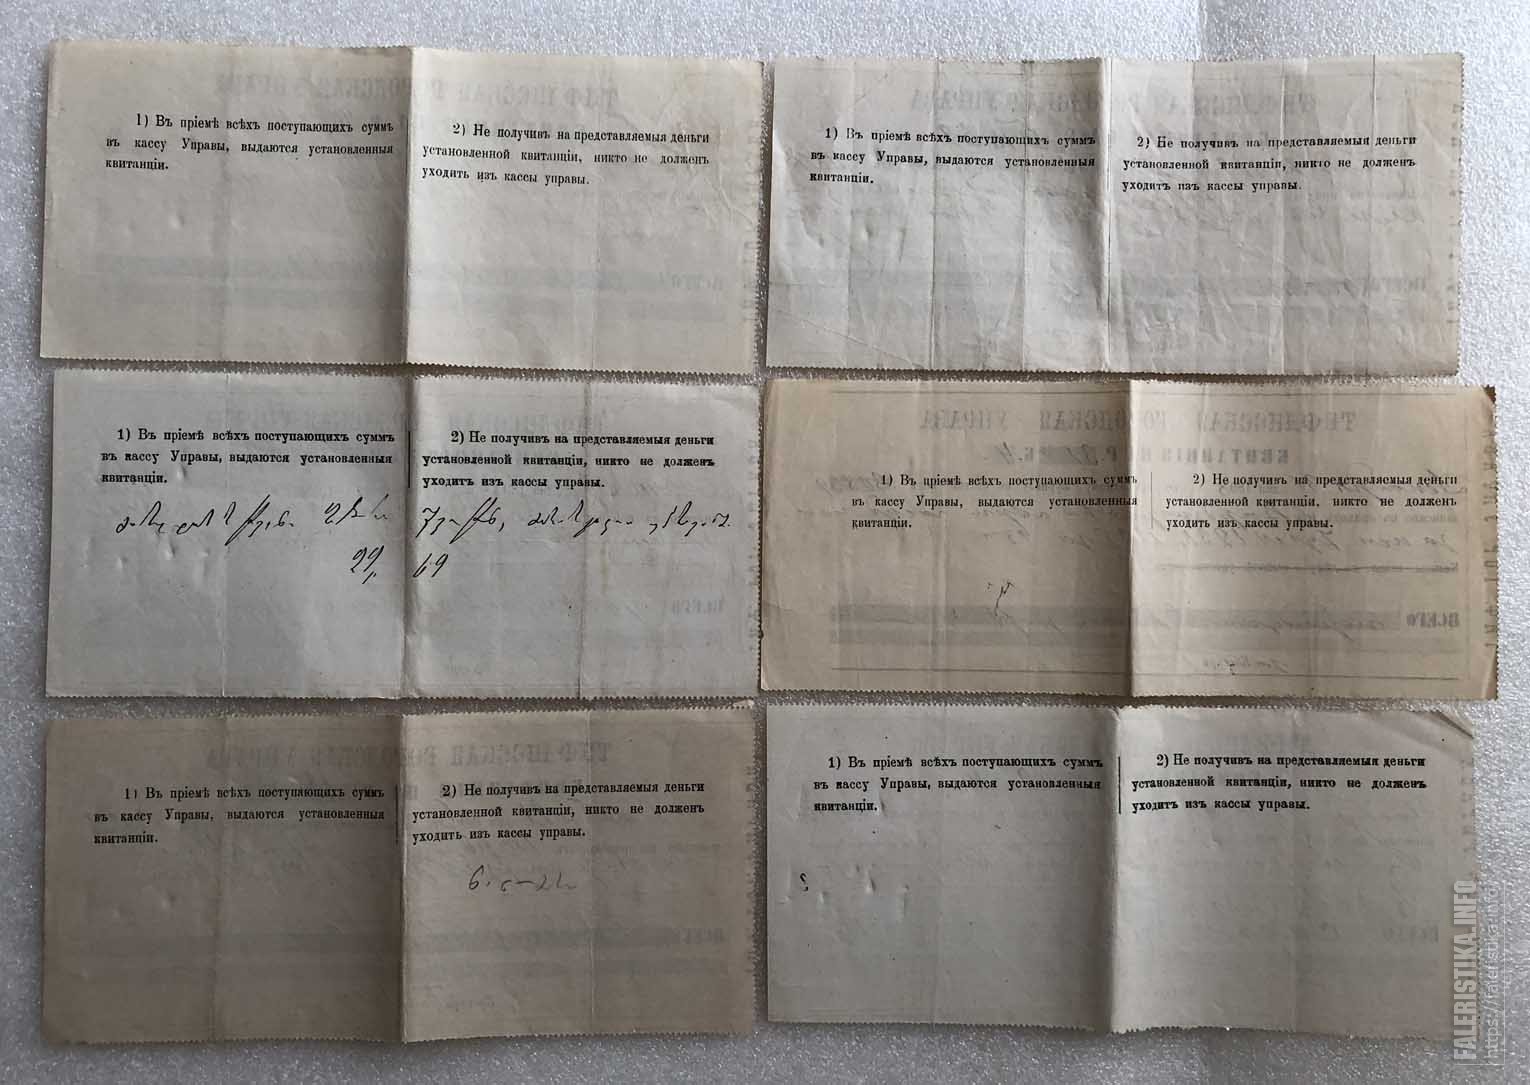 1) Въ пріемѣ всѣхъ поступающихъ суммъ
въ кассу Управы, выдаются установленныя
квитанціи.
2) Не получивъ на представляемыя деньги
установленной квитанціи, никто не долженъ
уходить изъ кассы управы.
1) Въ пріемѣ всѣхъ поступающихъ суммъ
въ кассу Управы, выдаются установленныя
квитанціи.
2) Не получивъ на представляемыя деньги
установленной квитанціи, никто не долженъ
уходить изъ кассы управы.
1) Въ пріемѣ всѣхъ поступающихъ суммъ
въ кассу Управы, выдаются установленныя
квитанціи.
2) Не получивъ на представляемыя деньги
установленной квитанціи, никто не долженъ
уходить изъ кассы управы.
69
ТИФЛИССКАЯ ГОРОДСКАЯ УПРАВА
1) Въ пріемѣ всѣхъ поступающихъ суммъ
въ кассу Управы, выдаются установленныя
квитанціи.
2) Не получивъ на представляемыя деньги
установленной квитанціи, никто не долженъ
уходить изъ кассы управы.
ВСЕГО
1) Въ пріемѣ всѣхъ поступающихъ суммъ
въ кассу Управы, выдаются установленныя
квитанціи.
2) Не получивъ на представляемыя деньги
установленной квитанціи, никто не долженъ
уходить изъ кассы управы.
1) Въ пріемѣ всѣхъ поступающихъ суммъ
въ кассу Управы, выдаются установленныя
квитанціи.
2) Не получивъ на представляемыя деньги
установленной квитанціи, никто не долженъ
уходить изъ кассы управы.
FALERISTIKA.INFO
https://faleristika.info